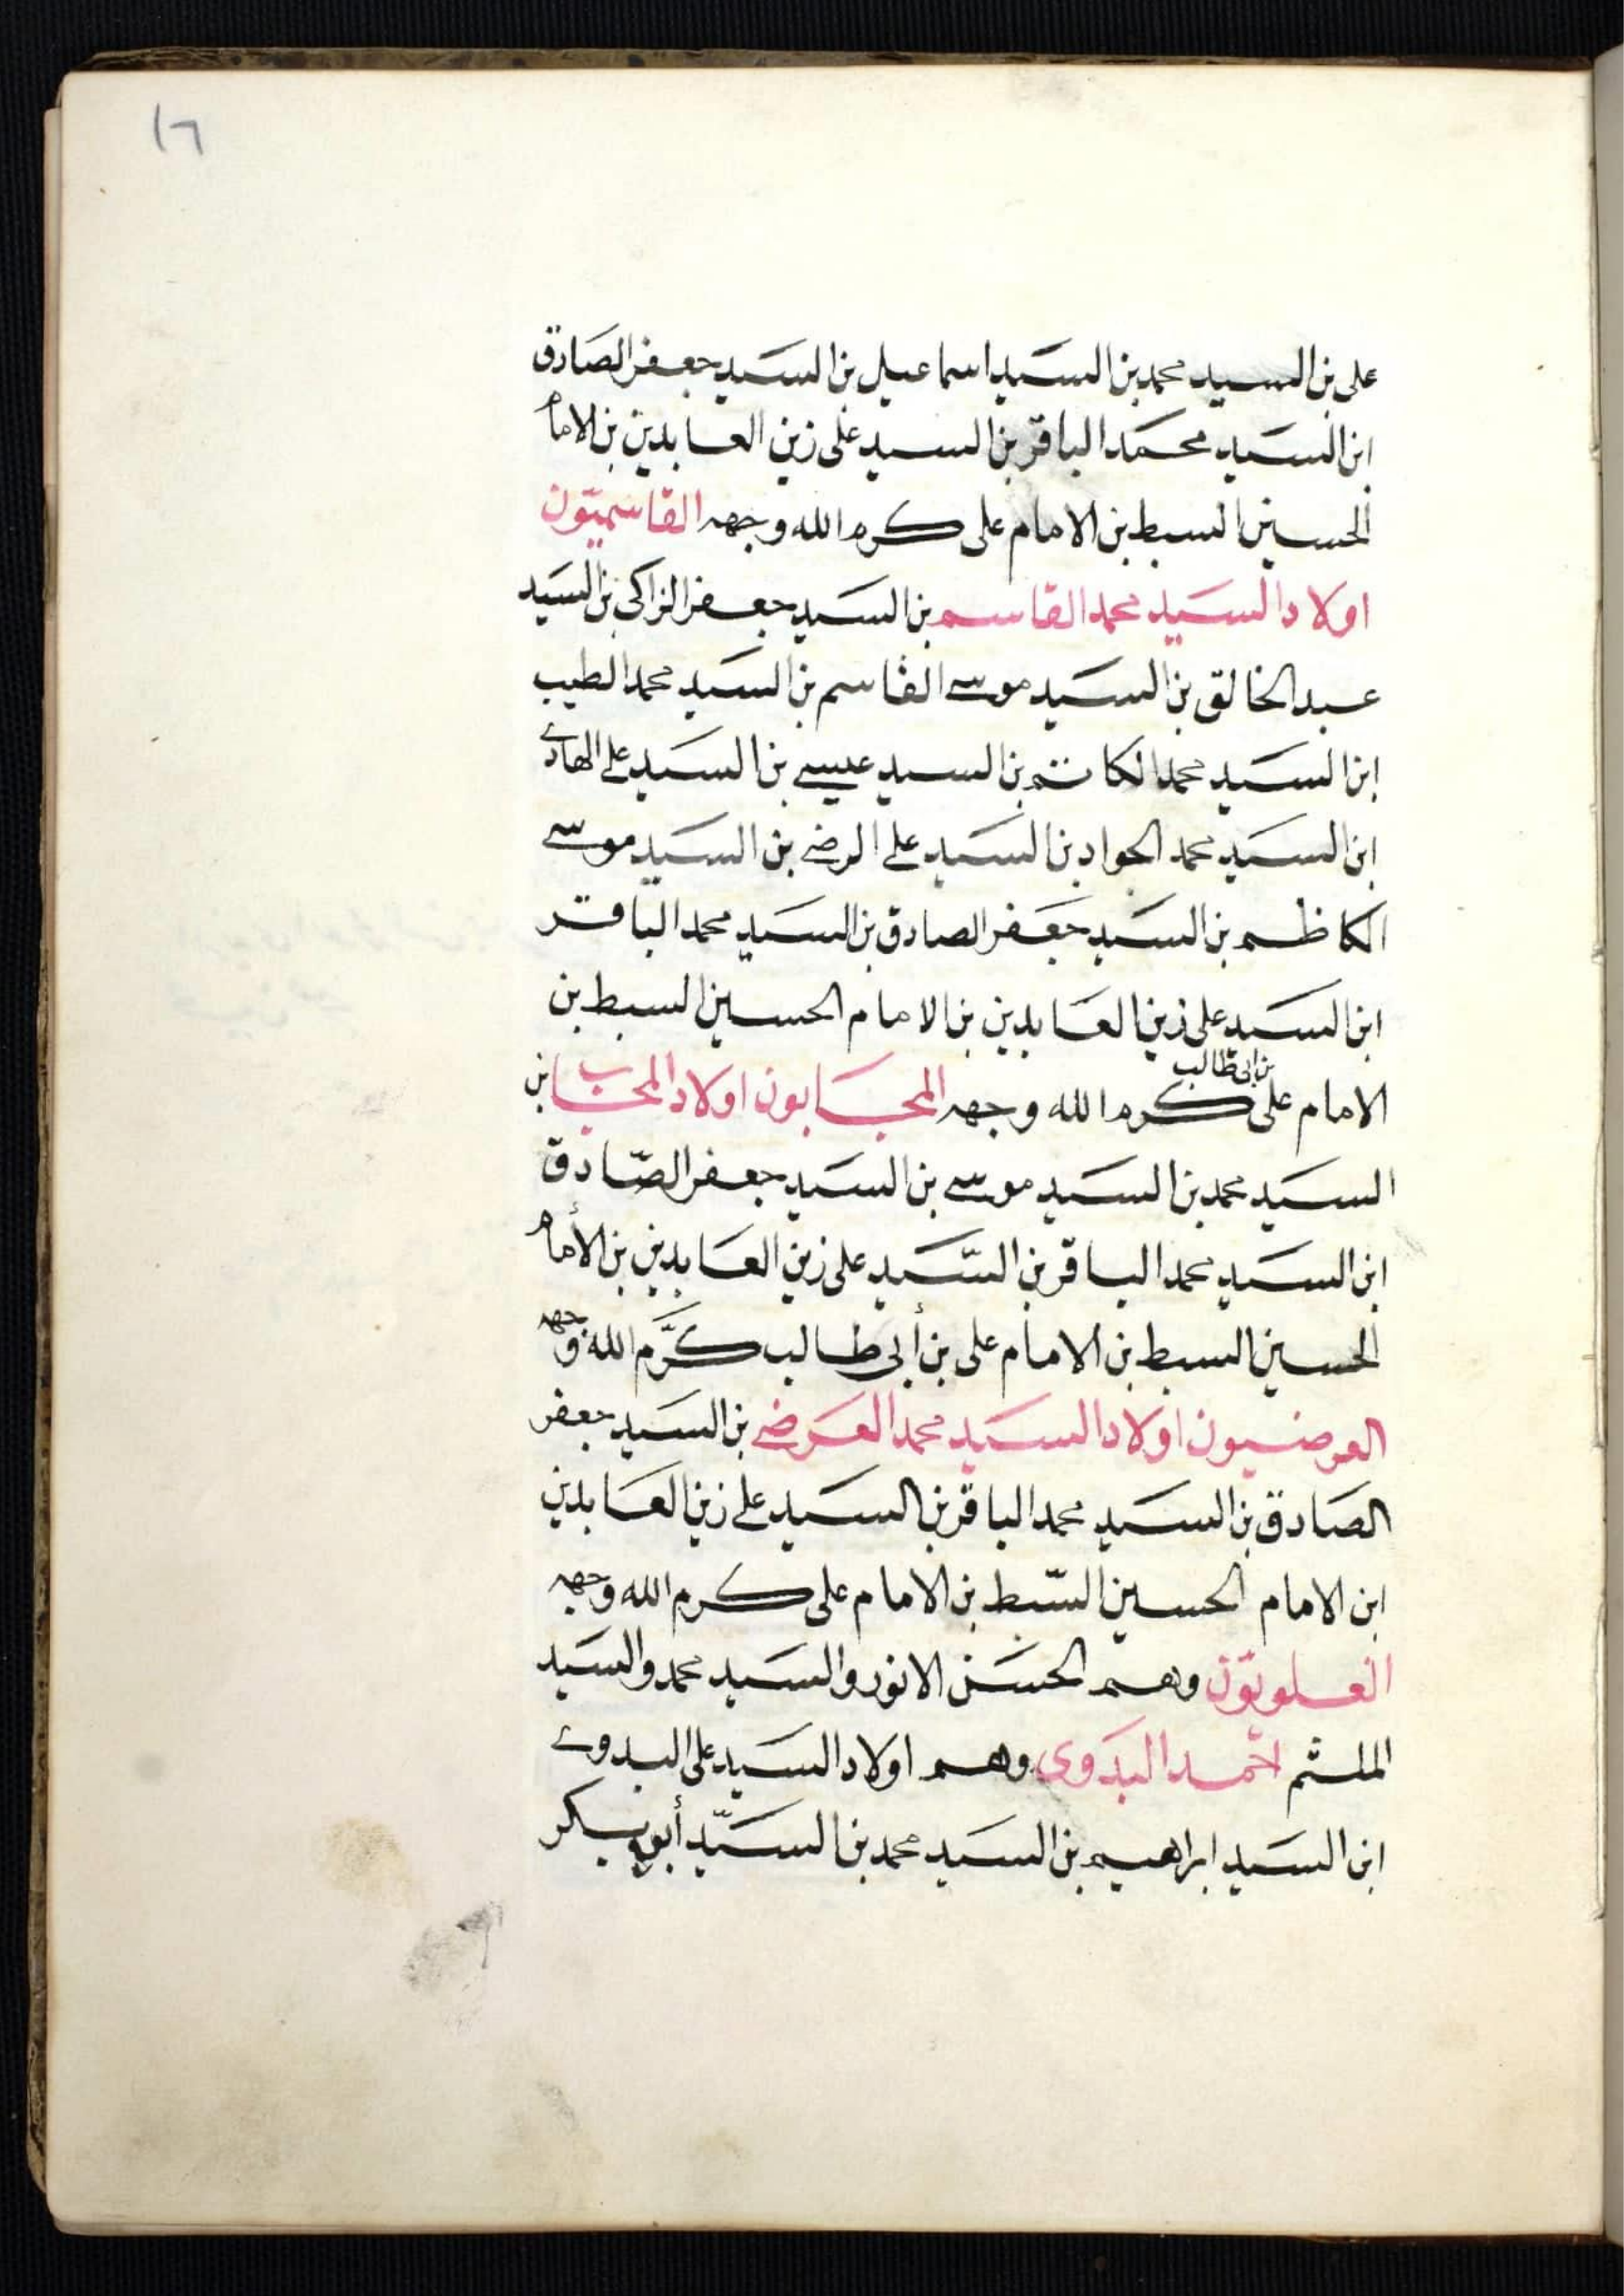 ١٦
على بن السيد محمد بن السيد اسماعيل بن السيد جعفر الصادق
ابن السيد محمد الباقر بن السيد على زين العابدين بن الامام
الحسين السبط بن الامام على كرم الله وجهه القاسميّون
اولاد السيد محمد القاسم بن السيد جعفر الزاكى بن السيد
عبد الخالق بن السيد موسے القاسم بن السيد محمد الطيب
ابن السيد محمد الكاتم بن السيد عيسے بن السيد علے الهادے
ابن السيد محمد الجواد بن السيد علے الرضے بن السيد موسے
الكاظم بن السيد جعفر الصادق بن السيد محمد الباقر
ابن السيد على زين العابدين بن الامام الحسين السبط بن
الامام على بن ابى طالب كرم الله وجهه المجابون اولاد المجاب ابن
السيد محمد بن السيد موسے بن السيد جعفر الصّادق
ابن السيد محمد الباقر بن السّيد على زين العابدين بن الأمام
الحسين السبط بن الامام على بن أبى طالب كرَّم الله وجهه
العرضيون اولاد السيد محمد العرضے بن السيد جعفر
الصادق بن السيد محمد الباقر بن السيد علے زين العابدين
ابن الامام الحسين السّبط بن الامام على كرم الله وجهه
العلويّون وهم الحسن الانور والسيد محمد والسيد
الملثم احمد البدوى وهم اولاد السيد على البدوے
ابن السيد ابراهيم بن السيد محمد بن السيّد أبو بكر